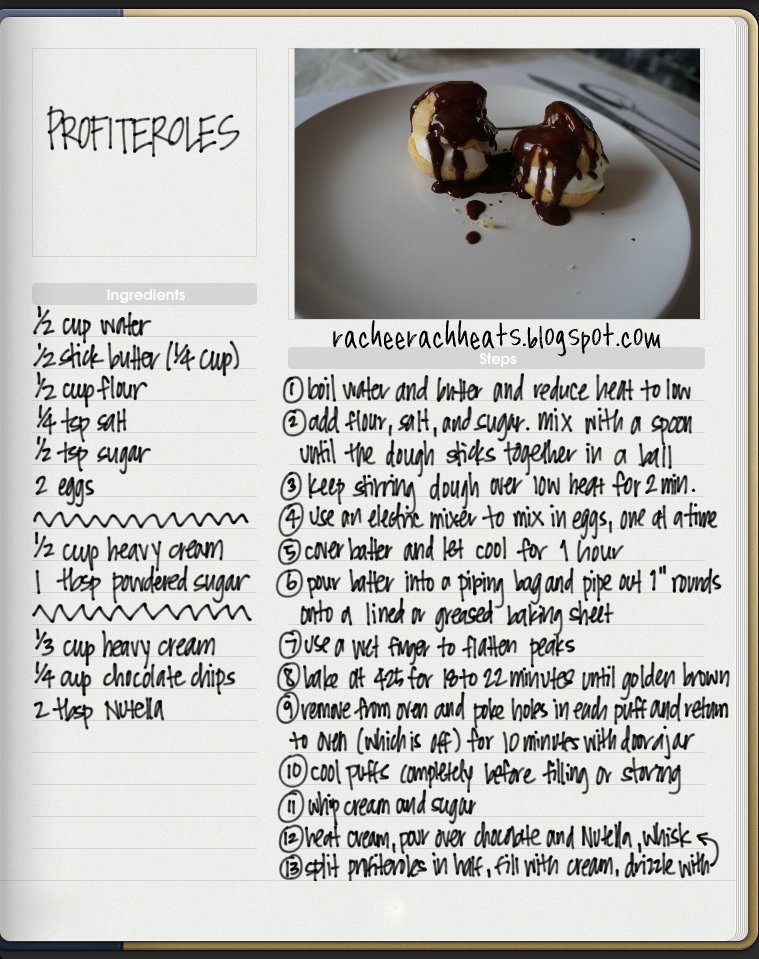 PROFITEROLES
Ingredients
1/2 cup water
1/2 stick butter (1/4 cup)
1/2 cup flour
1/4 tsp salt
1/2 tsp sugar
2 eggs
1/2 cup heavy cream
1 tbsp powdered sugar
1/3 cup heavy cream
1/4 cup chocolate chips
2 tbsp Nutella
racheerachheats.blogspot.com
Steps
① boil water and butter and reduce heat to low
② add flour, salt, and sugar. mix with a spoon
until the dough sticks together in a ball
③ keep stirring dough over low heat for 2 min.
④ use an electric mixer to mix in eggs, one at a time
⑤ cover batter and let cool for 1 hour
⑥ pour batter into a piping bag and pipe out 1" rounds
onto a lined or greased baking sheet
⑦ use a wet finger to flatten peaks
⑧ bake at 425 for 18 to 22 minutes until golden brown
⑨ remove from oven and poke holes in each puff and return
to oven (which is off) for 10 minutes with door ajar
⑩ cool puffs completely before filling or storing
⑪ whip cream and sugar
⑫ heat cream, pour over chocolate and Nutella, whisk
⑬ split profiteroles in half, fill with cream, drizzle with